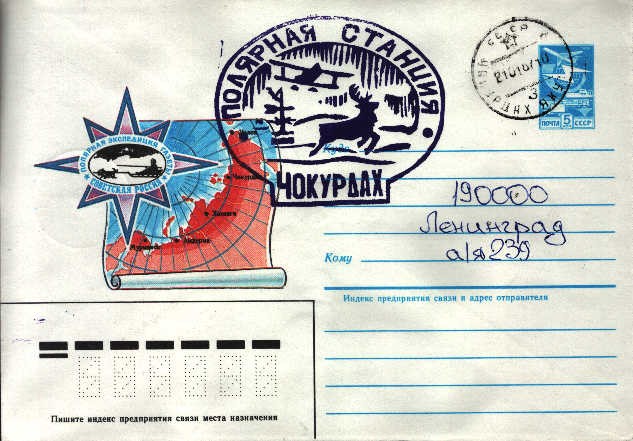 ПОЛЯРНАЯ СТАНЦИЯ
ЧОКУРДАХ
СССР
ПОЧТА 5 СССР
ПОЛЯРНАЯ ЭКСПЕДИЦИЯ ГАЗЕТЫ
СОВЕТСКАЯ РОССИЯ
Чокурдах
Хатанга
Андерма
Мурманск
Куда
190000
Ленинград
а/я 239
Кому
Индекс предприятия связи и адрес отправителя
Пишите индекс предприятия связи места назначения